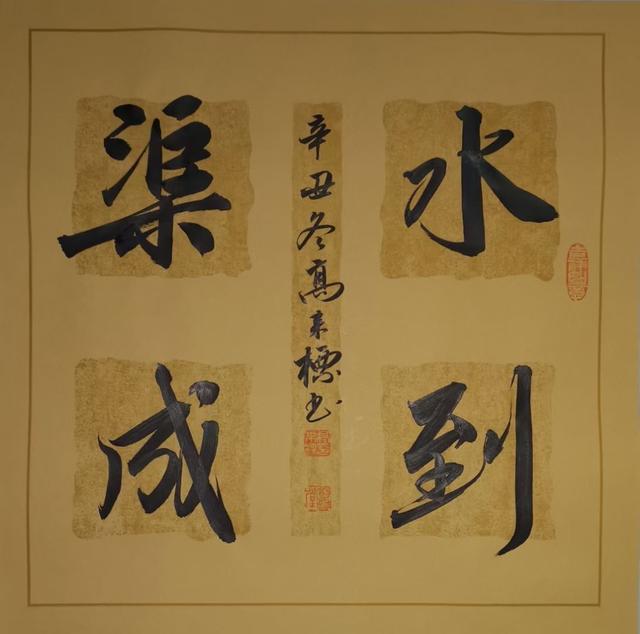 水到
渠成
辛丑冬高来標书